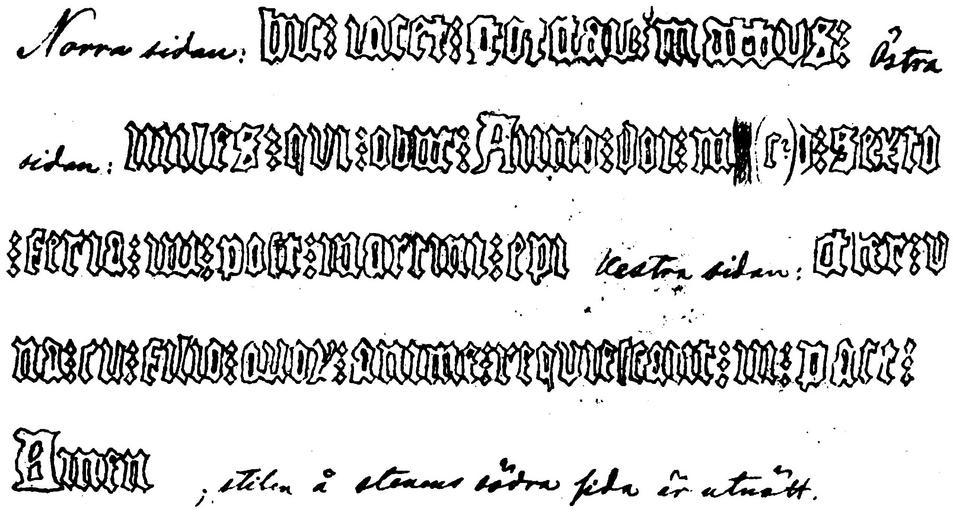 Norra sidan: hic: iacet: mattus: Östra
sidan: miles: qui: obiit: Anno: m (c?)o: sexto
: feria: iiii: post: martini: epi Vestra sidan: v
na: cu: filio: quor: anime: requiescant: in: pace:
Amen ; stilen å stenens södra sida är utnött.